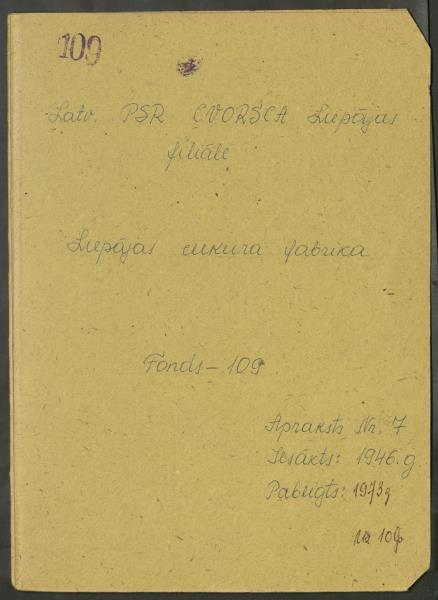 109
Latv. PSR CVORŠCA Liepājas
filiāle
Liepājas cukura fabrika
Fonds - 109
Apraksts Nr. 7
Iesākts: 1946. g
Pabeigts: 1973 g